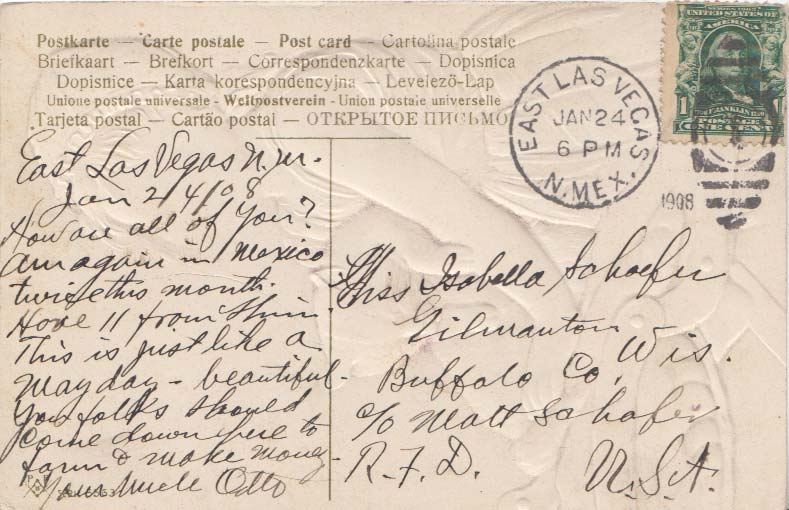 Postkarte — Carte postale — Post card — Cartolina postale
Briefkaart — Brefkort — Correspondenzkarte — Dopisnica
Dopisnice — Karta korespondencyjna — Levelező-Lap
Unione postale universale - Weltpostverein - Union postale universelle
Tarjeta postal — Cartão postal — ОТКРЫТОЕ ПИСЬМО
EAST LAS VEGAS
JAN 24
6 PM
N. MEX.
1908
SERIES 1902
UNITED STATES OF
AMERICA
1 1
FRANKLIN
POSTAGE
ONE CENT
East Las Vegas N.M.
Jan 24/08
How are all of you?
Am again in Mexico
twice this month.
Have 11 from
This is just like a
May day - beautiful -
You folks should
come down here to
farm & make money -
Your Uncle Otto
Miss Isabella Schaefer
Gilmanton
Buffalo Co, Wis.
c/o Matt Schafer
R.F.D.
U.S.A.